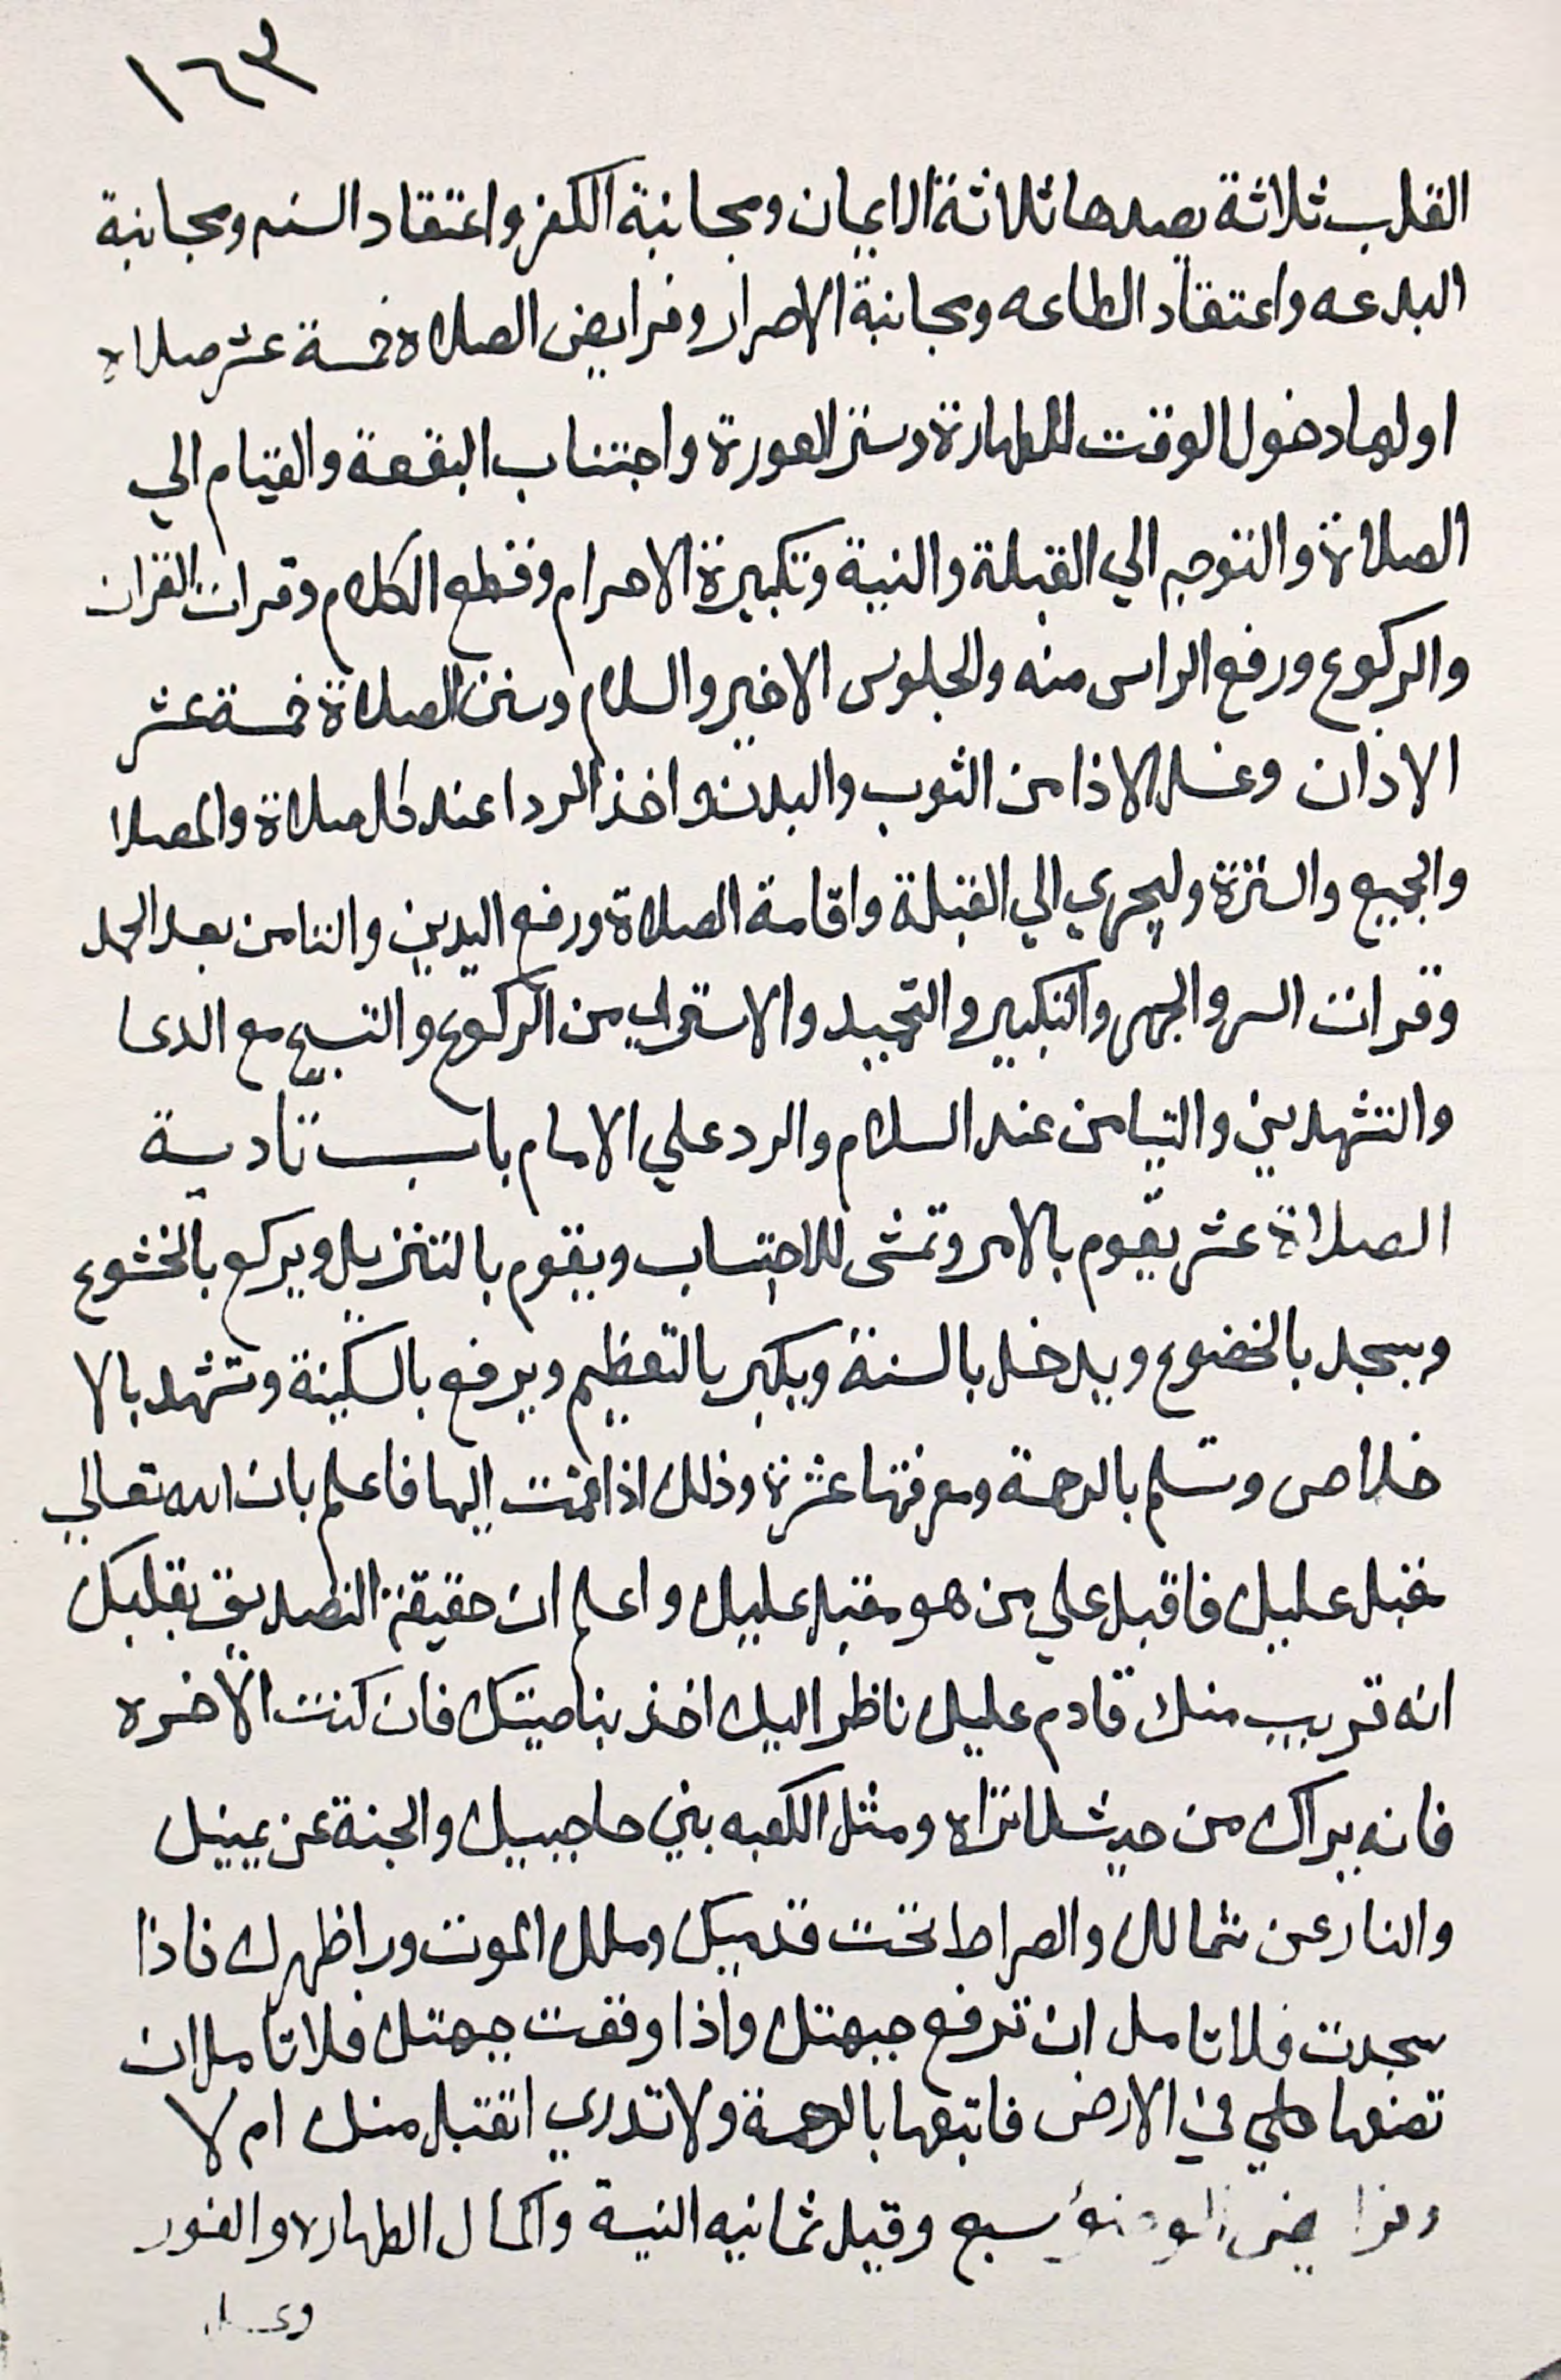 ١٦٣
القلب ثلاثة يصدها ثلاثة الايمان ومجانبة الكفر واعتقاد السنه ومجانبة
البدعه واعتقاد الطاعه ومجانبة الاصرار وفرايض الصلاة خمسة عشر صلاة
اولها دخول الوقت للطهارة وستر العورة واجتناب البقعة والقيام الي
الصلاة والتوجه الي القبلة والنية وتكبيرة الاحرام وقطع الكلام وقرات القران
والركوع ورفع الراس منه والجلوس الاخير والسلام وسنن الصلاة خمسة عشر
الاذان وغسل الاذا من الثوب والبدن واخذ الردا عند كل صلاة والمصلا
والجميع والسترة وليجري الي القبلة واقامة الصلاة ورفع اليدين والتامن بعد الحمد
وقرات السر والجهر والتكبير والتحميد والاستوي من الركوع والتسبيح مع الدعا
والتشهدين والتيامن عند السلام والرد علي الامام باب تاديية
الصلاة عشر يقوم بالامر وتمشى للاحتساب ويقوم بالتنزيل ويركع بالخشوع
ويسجد بالخضوع ويدخل بالسنة ويكبر بالتعظيم ويرفع بالسكينة وتشهد بالا
خلاص وتسلم بالرحمة ومعرفتها عشرة وذلك اذا قمت اليها فاعلم بان الله تعالي
مقبل عليك فاقبل علي من هو مقبل عليك واعلم ان حقيقة التصديق بقلبك
انه قريب منك قادم عليك ناظر اليك اخذ بناصيتك فان كنت الاخره
فانه يراك من حيث لا تراه ومثل الكعبه بين حاجبيك والجنة عن يمينك
والنار عن شمالك والصراط تحت قدميك وملك الموت ورا ظهرك فاذا
سجدت فلا تامل ان ترفع جبهتك واذا وقفت جبهتك فلا تامل ان
تضعها علي في الارض فاتبعها بالرحمة ولا تدري اتقبل منك ام لا
وفرايض الوضؤ سبع وقيل ثمانيه النية واكمال الطهارة والفور